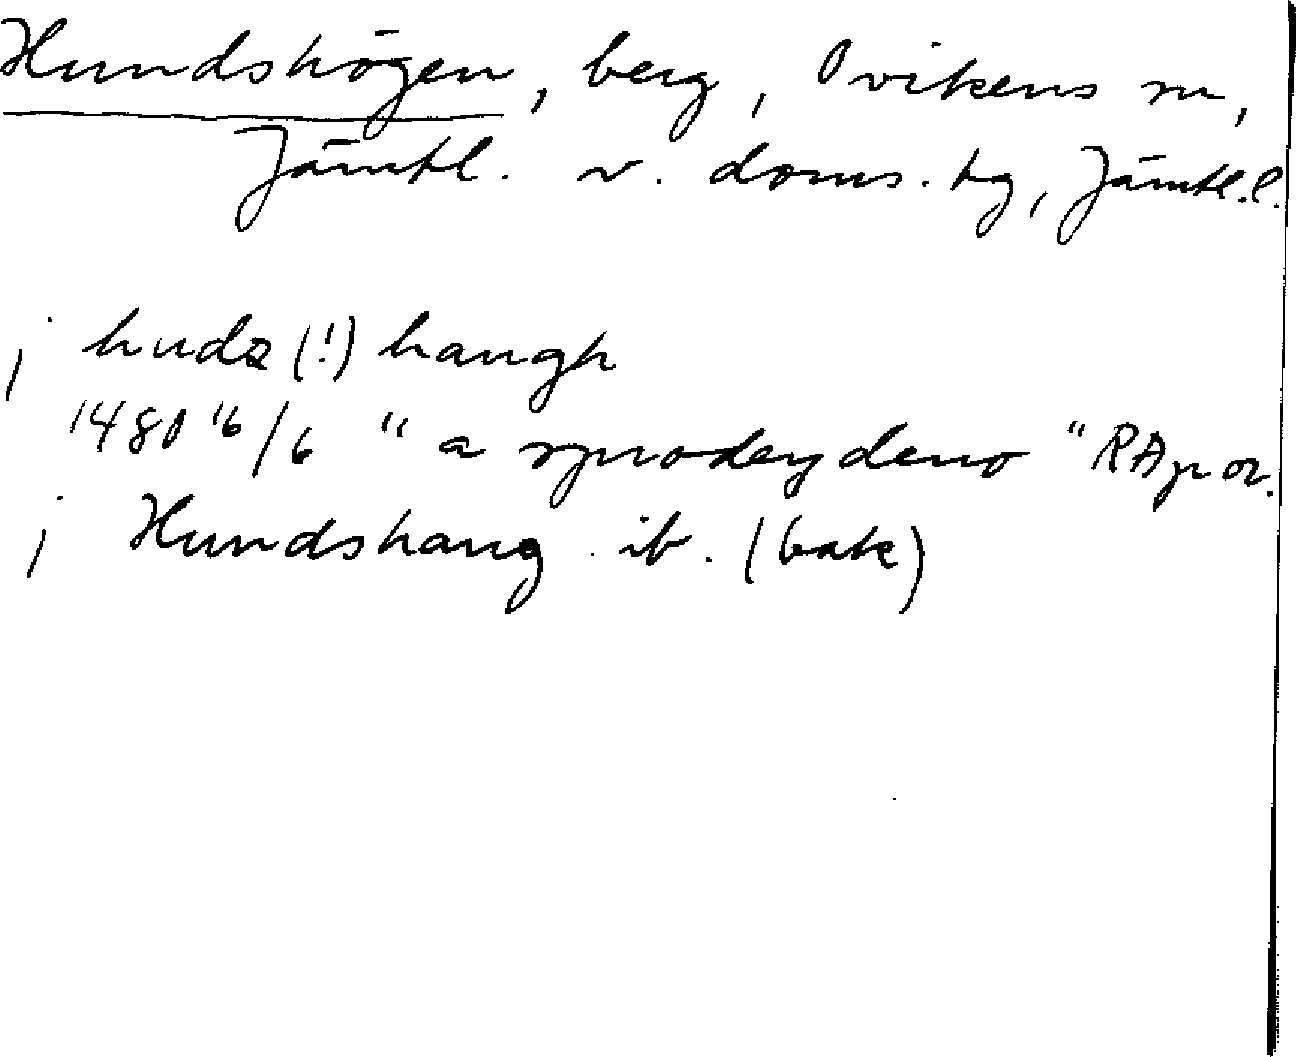 Hundshögen, berg, Ovikens sn,
Jämtl. v. doms. tg, Jämtl.l.
j hudz (!) haugh
1480 16/6 "a synodeydeno" RAp or.
j Hundshaug ib. (bak)